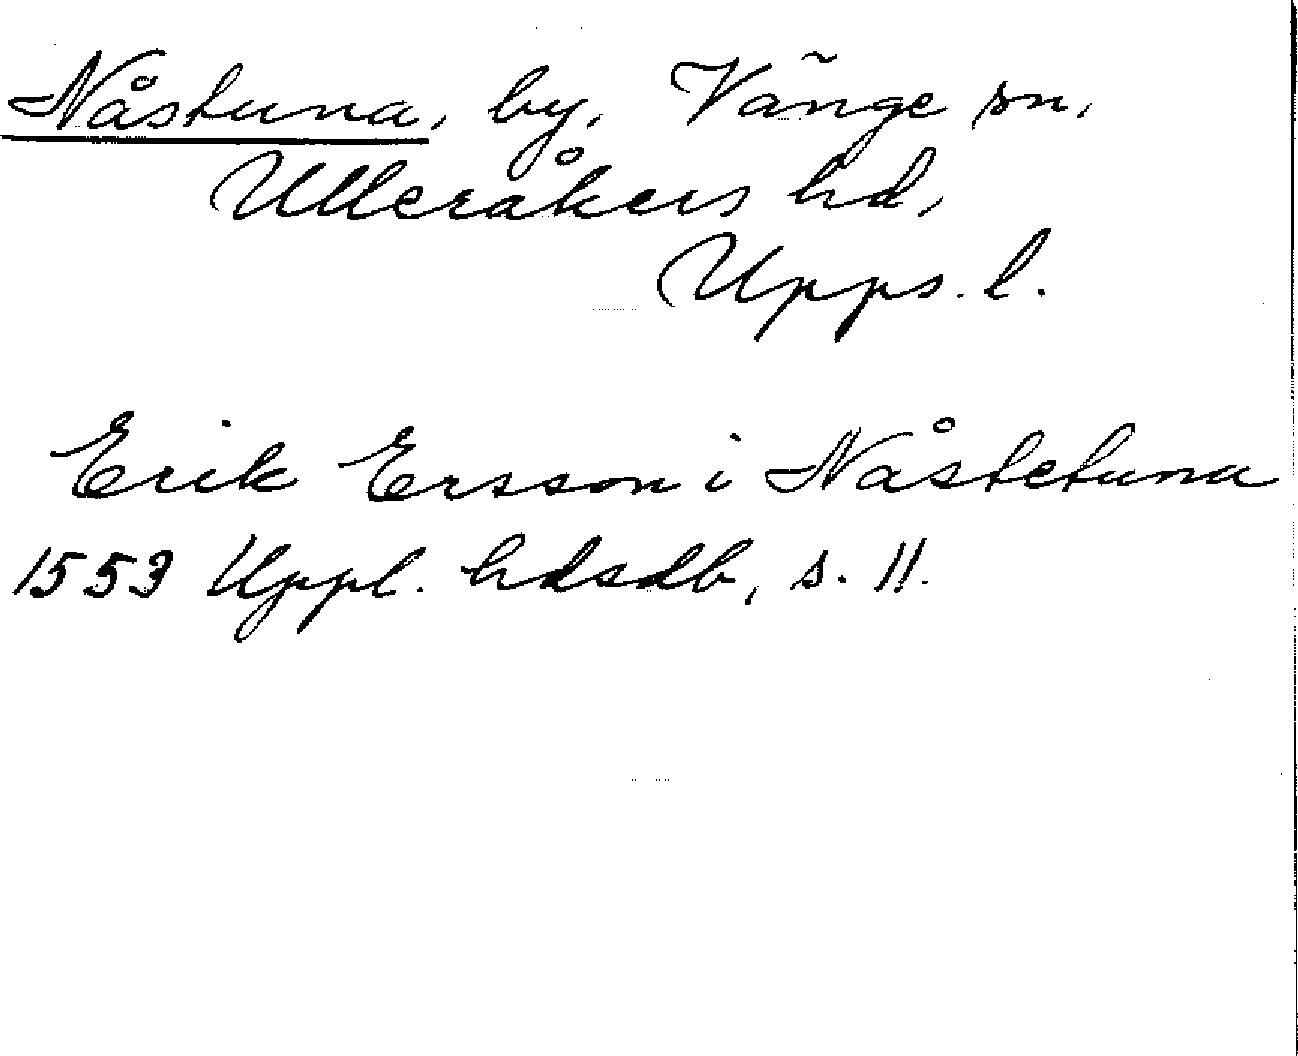 Nåstuna, by, Vänge sn,
Ulleråkers hd,
Upps. l.
Erik Ersson i Nåstetuna
1553 Uppl. hdsdb, s. 11.